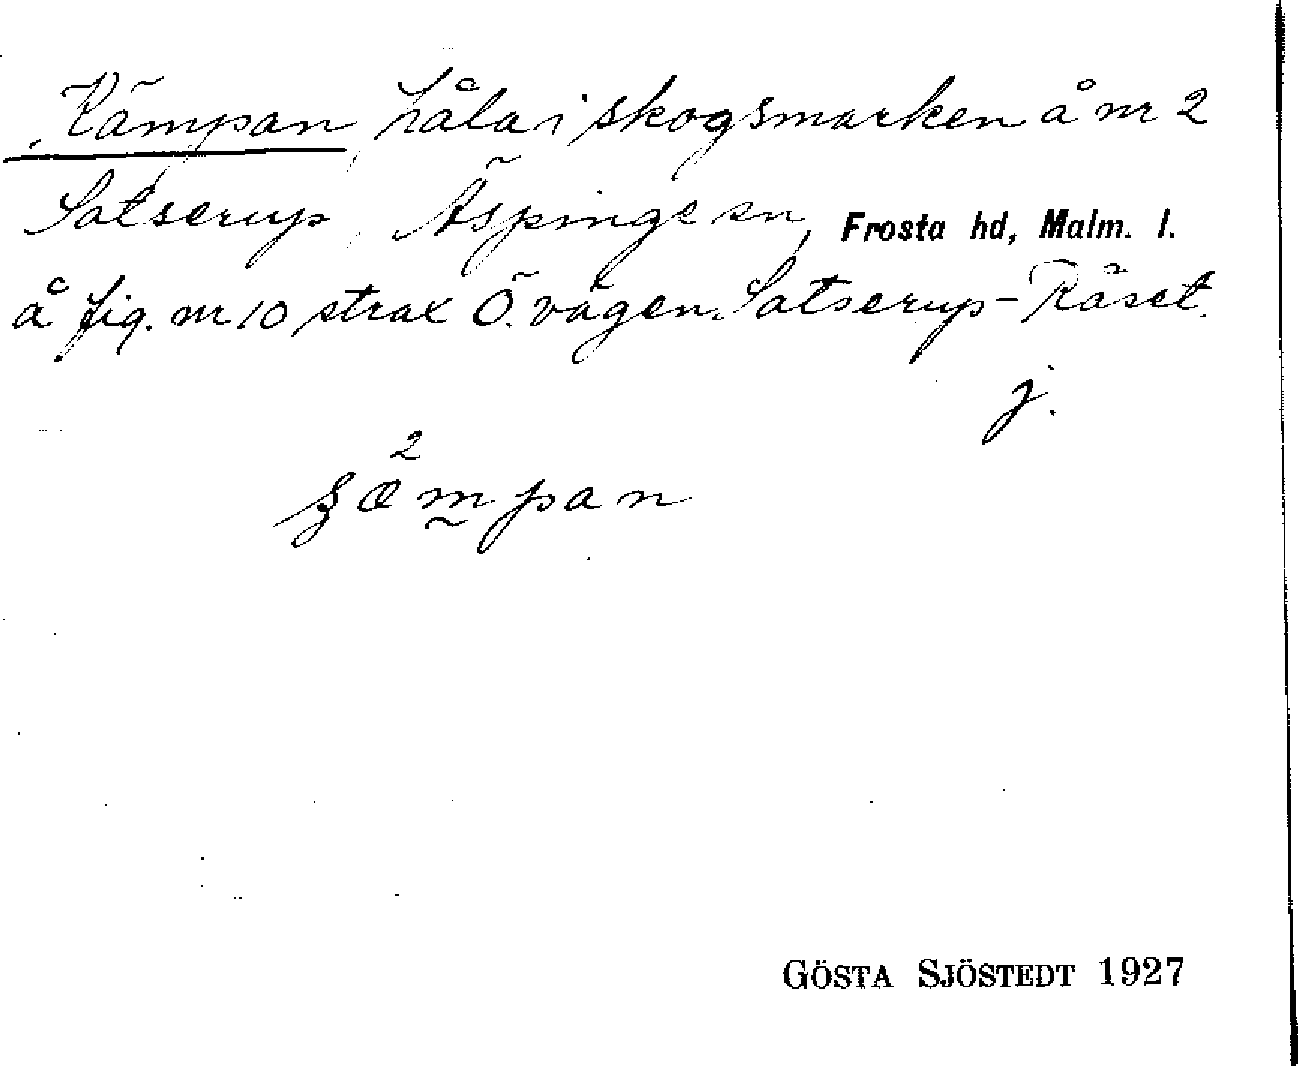 Kämpan, håla i skogsmarken å nr 2
Satserup, Äspinge sn, Frosta hd, Malm. l.
å fig. nr 10 strax Ö. vägen Satserup-Räset.
j.
2
ȥæmpan
GÖSTA SJÖSTEDT 1927